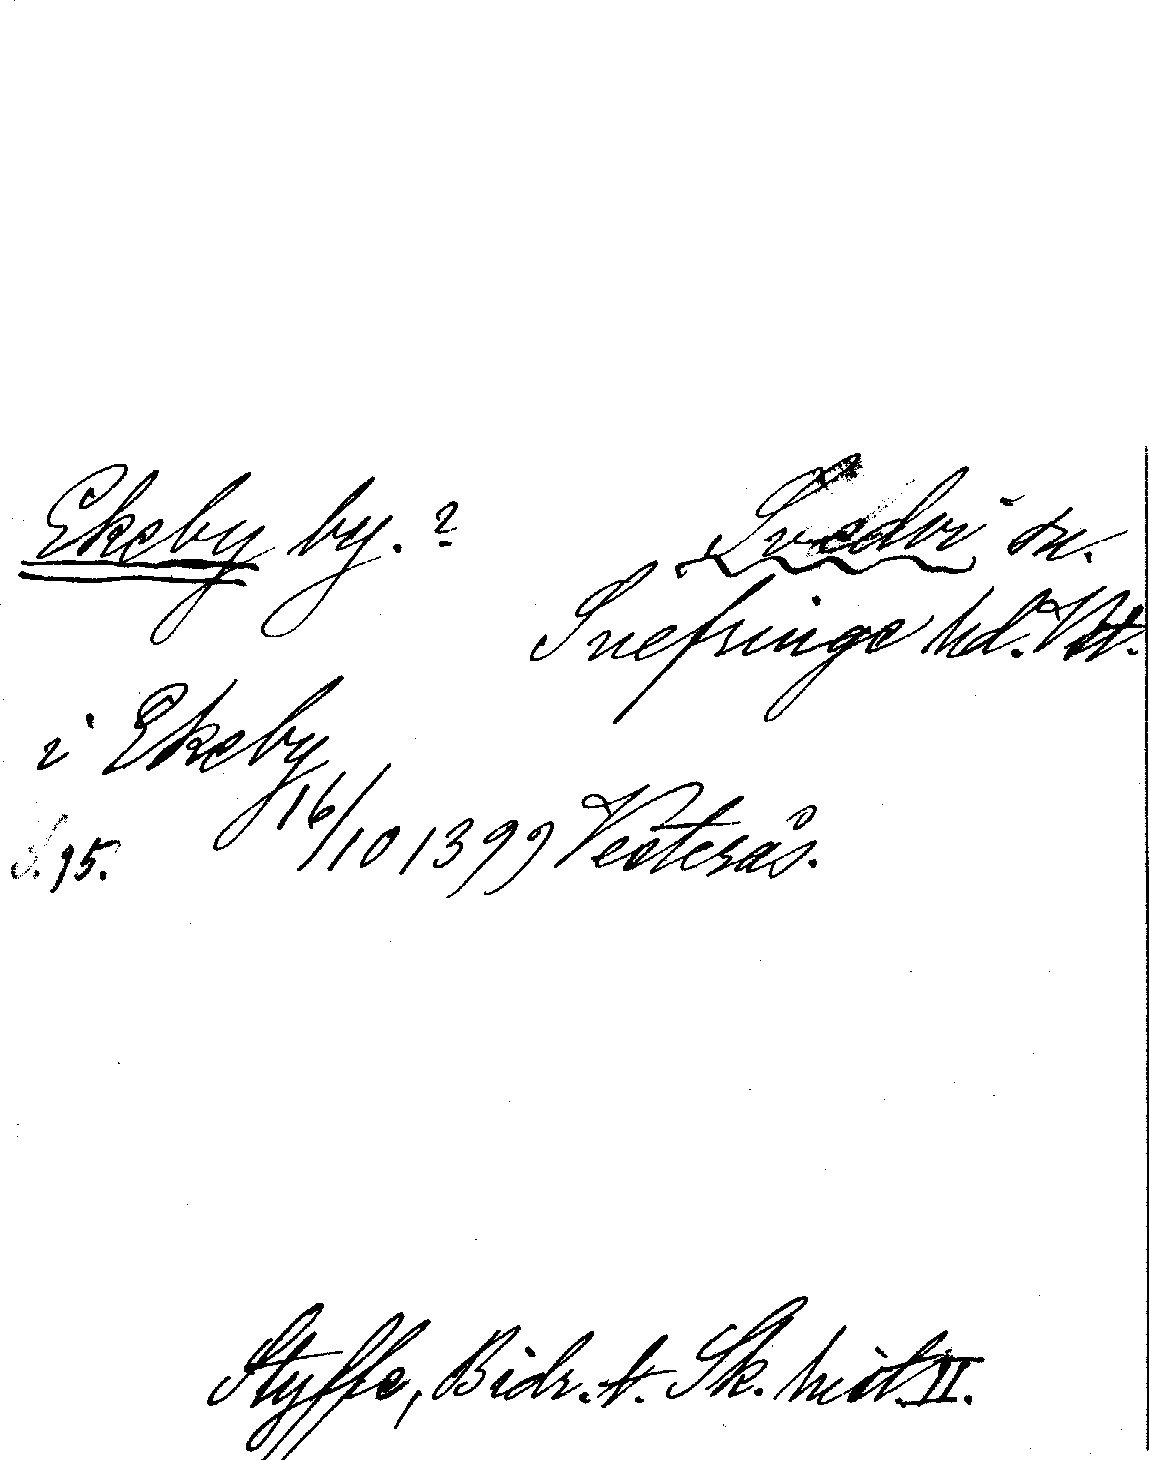 Ekeby by. ? Svedvi sn.
Snefringe hd. Vst.
i Ekeby
S. 95. 16/10 1399 Vesterås.
Styffe, Bidr. t. Sk. hist. II.